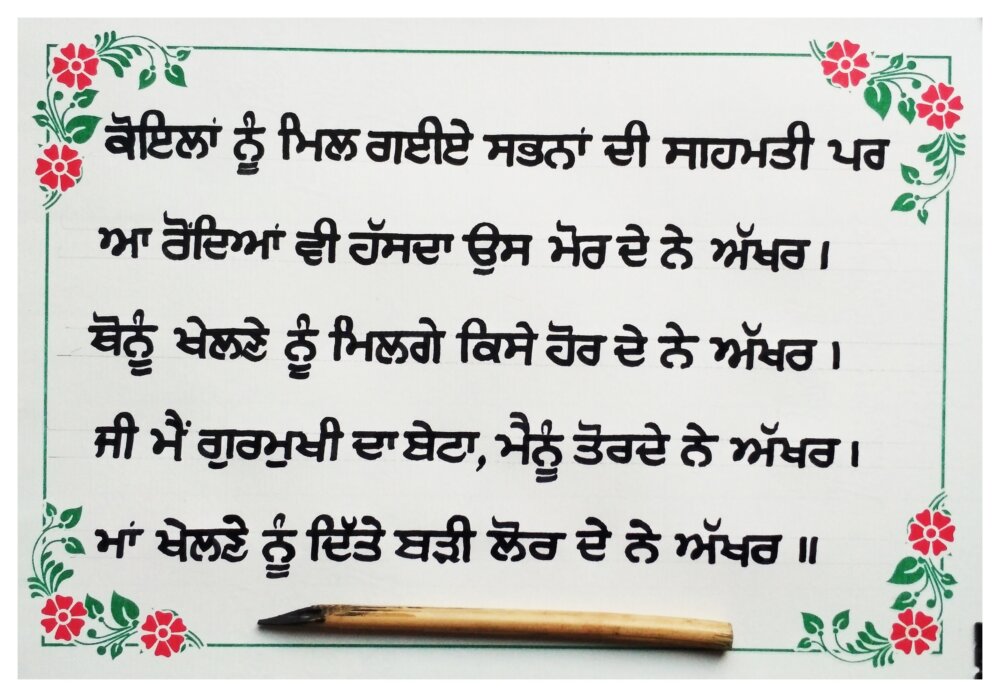 ਕੋਇਲਾਂ ਨੂੰ ਮਿਲ ਗਈਏ ਸਭਨਾਂ ਦੀ ਸਾਹਮਤੀ ਪਰ
ਆ ਰੋਂਦਿਆਂ ਵੀ ਹੱਸਦਾ ਉਸ ਮੋਰ ਦੇ ਨੇ ਅੱਖਰ।
ਥੋਨੂੰ ਖੇਲਣੇ ਨੂੰ ਮਿਲਗੇ ਕਿਸੇ ਹੋਰ ਦੇ ਨੇ ਅੱਖਰ।
ਜੀ ਮੈਂ ਗੁਰਮੁਖੀ ਦਾ ਬੇਟਾ, ਮੈਨੂੰ ਤੋਰਦੇ ਨੇ ਅੱਖਰ।
ਮਾਂ ਖੇਲਣੇ ਨੂੰ ਦਿੱਤੇ ਬੜੀ ਲੋਰ ਦੇ ਨੇ ਅੱਖਰ॥